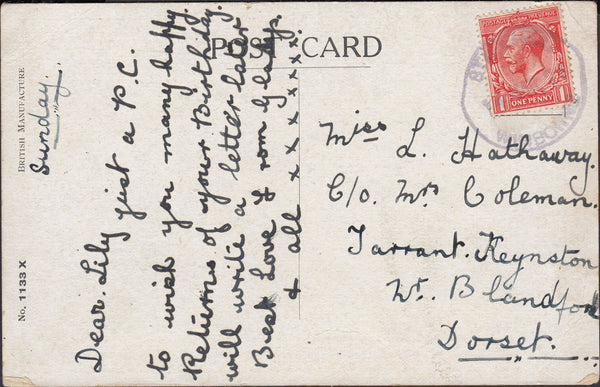 POST CARD
BRITISH MANUFACTURE
No. 1133 X
Sunday.
Dear Lily just a P.C.
to wish you many happy
Returns of your Birthday
will write a letter later
Best Love from Gladys.
& all x x x x x x x
POSTAGE REVENUE
ONE PENNY
1 1
Miss L. Hathaway.
C/o. Mrs Coleman.
Tarrant. Keynston
Nr. Blandford
Dorset.